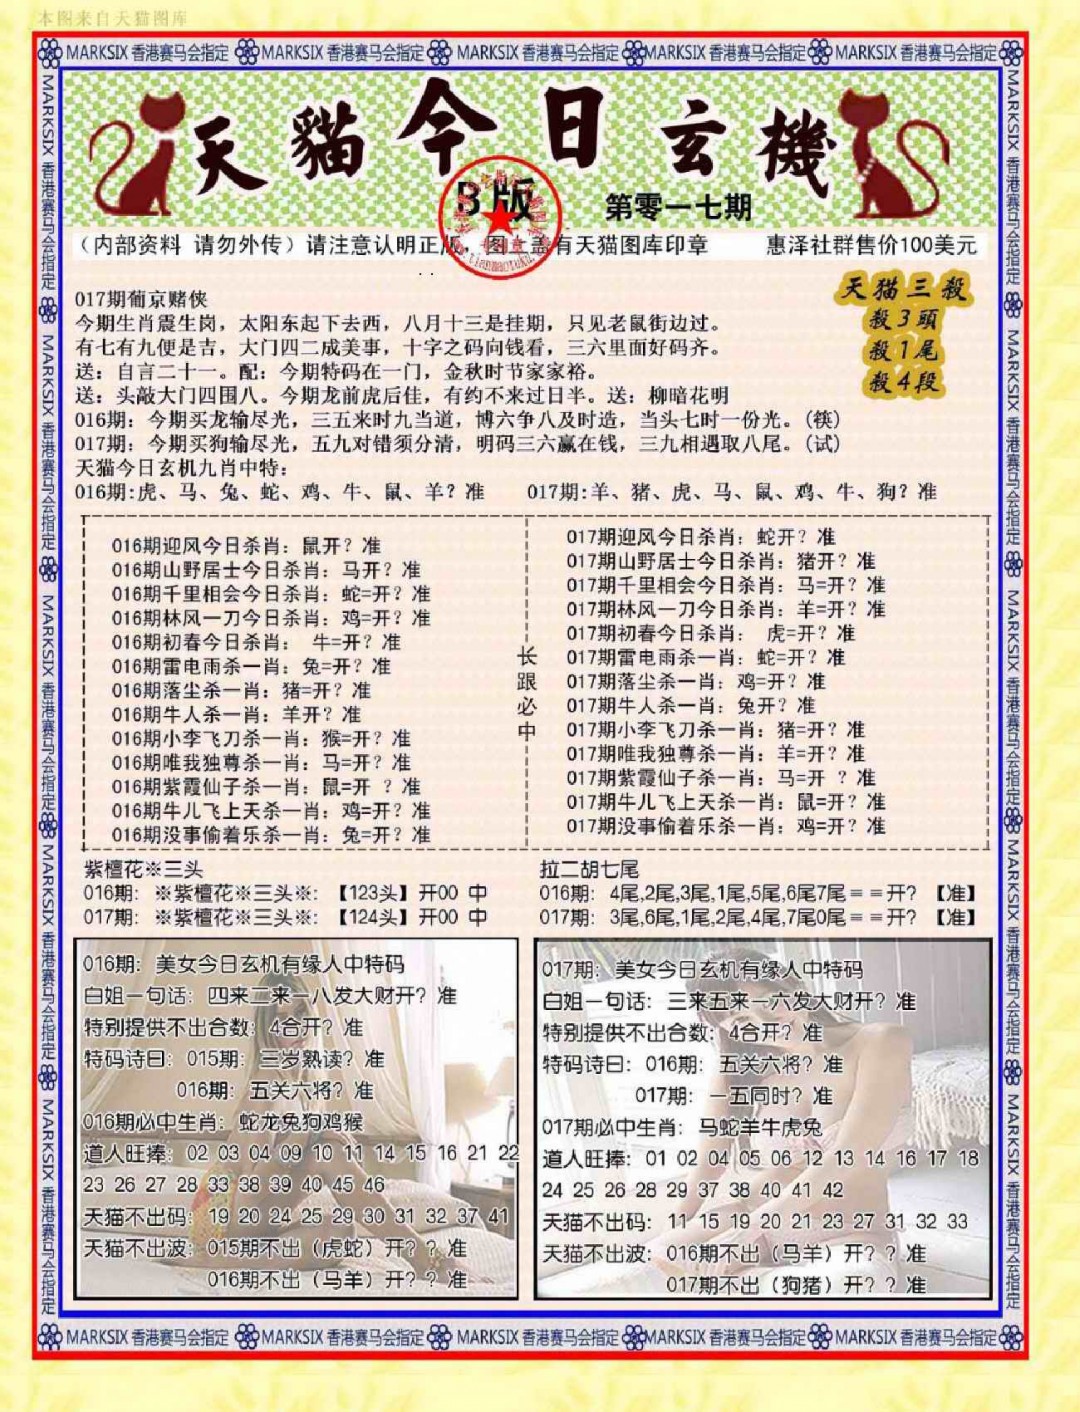 本图来自天猫图库
MARKSIX 香港赛马会指定 MARKSIX 香港赛马会指定 MARKSIX 香港赛马会指定 MARKSIX 香港赛马会指定 MARKSIX 香港赛马会指定
天貓今日玄機
B版
第零一七期
(内部资料 请勿外传) 请注意认明正版, 图上盖有天猫图库印章 惠泽社群售价100美元
天猫三殺
殺3頭
殺1尾
殺4段
017期葡京赌侠
今期生肖震生岗, 太阳东起下去西, 八月十三是挂期, 只见老鼠街边过。
有七有九便是吉, 大门四二成美事, 十字之码向钱看, 三六里面好码齐。
送: 自言二十一。配: 今期特码在一门, 金秋时节家家裕。
送: 头敲大门四围八。今期龙前虎后佳, 有约不来过日半。送: 柳暗花明
016期: 今期买龙输尽光, 三五来时九当道, 博六争八及时造, 当头七时一份光。(筷)
017期: 今期买狗输尽光, 五九对错须分清, 明码三六赢在钱, 三九相遇取八尾。(试)
天猫今日玄机九肖中特:
016期:虎、马、兔、蛇、鸡、牛、鼠、羊? 准 017期:羊、猪、虎、马、鼠、鸡、牛、狗? 准
016期迎风今日杀肖: 鼠开? 准
016期山野居士今日杀肖: 马开? 准
016期千里相会今日杀肖: 蛇=开? 准
016期林风一刀今日杀肖: 鸡=开? 准
016期初春今日杀肖: 牛=开? 准
016期雷电雨杀一肖: 兔=开? 准
016期落尘杀一肖: 猪=开? 准
016期牛人杀一肖: 羊开? 准
016期小李飞刀杀一肖: 猴=开? 准
016期唯我独尊杀一肖: 马=开? 准
016期紫霞仙子杀一肖: 鼠=开 ? 准
016期牛儿飞上天杀一肖: 鸡=开? 准
016期没事偷着乐杀一肖: 兔=开? 准
长跟必中
017期迎风今日杀肖: 蛇开? 准
017期山野居士今日杀肖: 猪开? 准
017期千里相会今日杀肖: 马=开? 准
017期林风一刀今日杀肖: 羊=开? 准
017期初春今日杀肖: 虎=开? 准
017期雷电雨杀一肖: 蛇=开? 准
017期落尘杀一肖: 鸡=开? 准
017期牛人杀一肖: 兔开? 准
017期小李飞刀杀一肖: 猪=开? 准
017期唯我独尊杀一肖: 羊=开? 准
017期紫霞仙子杀一肖: 马=开 ? 准
017期牛儿飞上天杀一肖: 鼠=开? 准
017期没事偷着乐杀一肖: 鸡=开? 准
紫檀花※三头
016期: ※紫檀花※三头※: 【123头】开00 中
017期: ※紫檀花※三头※: 【124头】开00 中
拉二胡七尾
016期: 4尾,2尾,3尾,1尾,5尾,6尾7尾＝＝开? 【准】
017期: 3尾,6尾,1尾,2尾,4尾,7尾0尾＝＝开? 【准】
016期: 美女今日玄机有缘人中特码
白姐一句话: 四来二来一八发大财开? 准
特别提供不出合数: 4合开? 准
特码诗曰: 015期: 三岁熟读? 准
016期: 五关六将? 准
016期必中生肖: 蛇龙兔狗鸡猴
道人旺捧: 02 03 04 09 10 11 14 15 16 21 22
23 26 27 28 33 38 39 40 45 46
天猫不出码: 19 20 24 25 29 30 31 32 37 41
天猫不出波: 015期不出 (虎蛇) 开? ? 准
016期不出 (马羊) 开? ? 准
017期: 美女今日玄机有缘人中特码
白姐一句话: 三来五来一六发大财开? 准
特别提供不出合数: 4合开? 准
特码诗曰: 016期: 五关六将? 准
017期: 一五同时? 准
017期必中生肖: 马蛇羊牛虎兔
道人旺捧: 01 02 04 05 06 12 13 14 16 17 18
24 25 26 28 29 37 38 40 41 42
天猫不出码: 11 15 19 20 21 23 27 31 32 33
天猫不出波: 016期不出 (马羊) 开? ? 准
017期不出 (狗猪) 开? ? 准
MARKSIX 香港赛马会指定 MARKSIX 香港赛马会指定 MARKSIX 香港赛马会指定 MARKSIX 香港赛马会指定 MARKSIX 香港赛马会指定
MARKSIX 香港赛马会指定 MARKSIX 香港赛马会指定 MARKSIX 香港赛马会指定 MARKSIX 香港赛马会指定 MARKSIX 香港赛马会指定
MARKSIX 香港赛马会指定 MARKSIX 香港赛马会指定 MARKSIX 香港赛马会指定 MARKSIX 香港赛马会指定 MARKSIX 香港赛马会指定